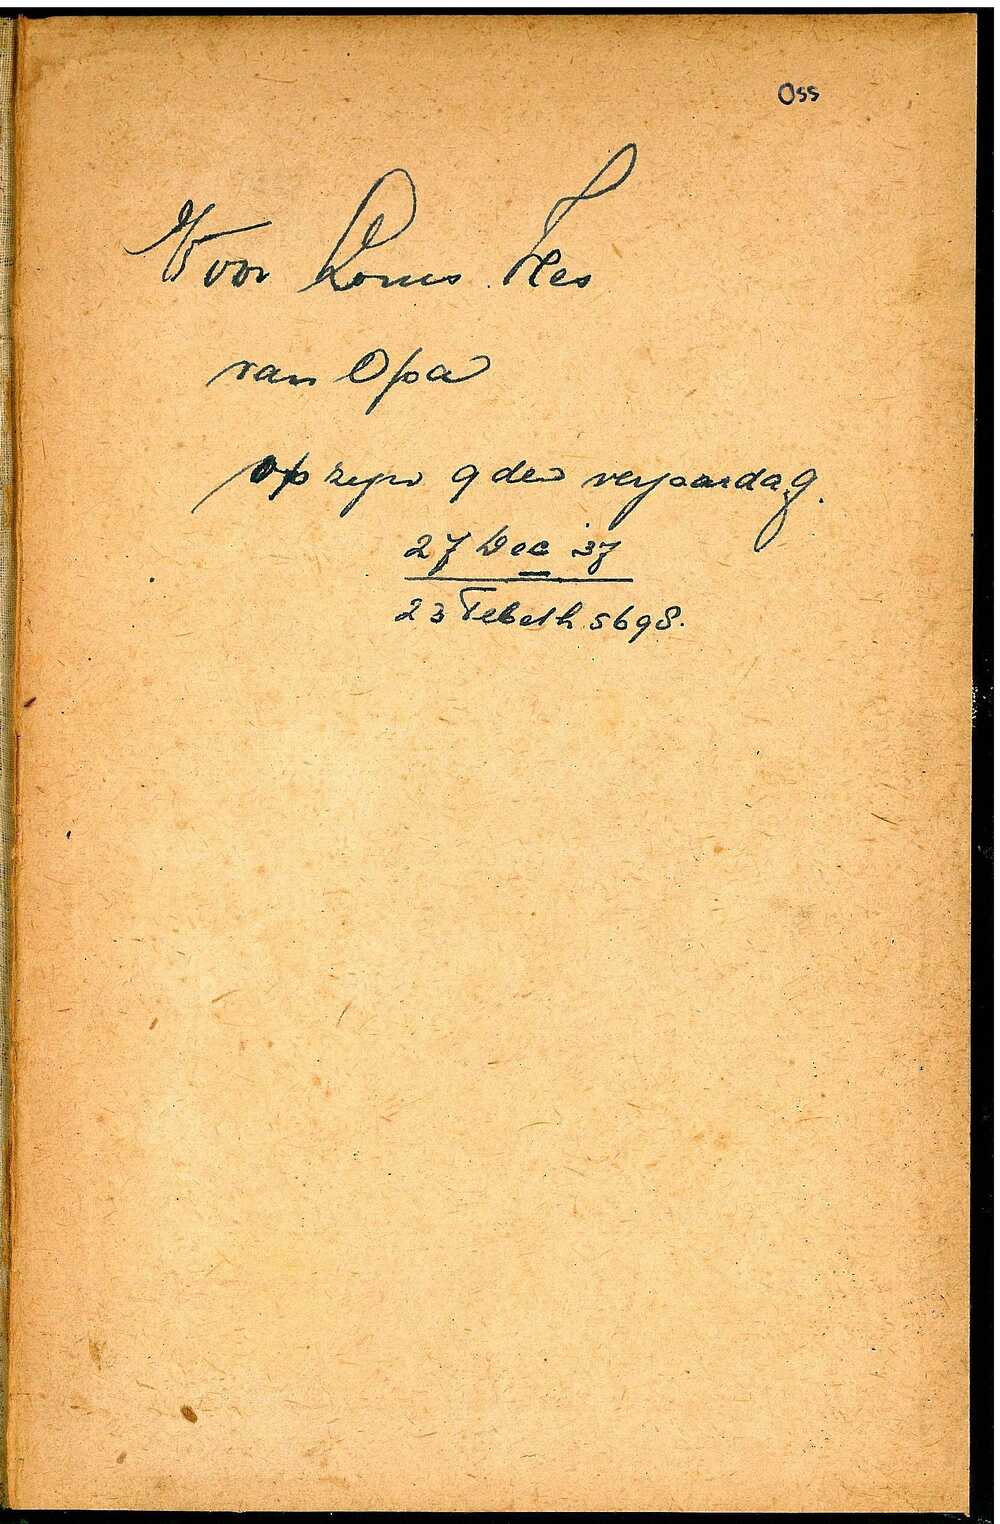 Oss
Voor Louis Hes
van Opa
op zijn 9den verjaardag.
27 Dec '37
23 Tebeth 5698.